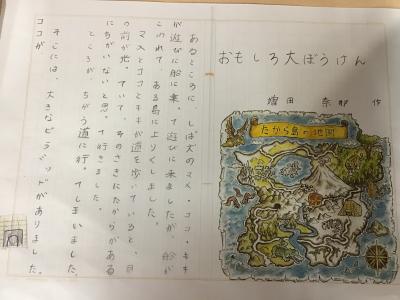 おもしろ大ぼうけん
田 作
たから島の地図
あるところに、しば犬のマメ・ココ・キキ
が遊びに船に乗って遊びに来ましたが、船が
こわれて、ある島に上りくしました。
マメとココとキキが道を歩いていると、目
の前が光っていて、そのさきにたからがある
にちがいないと思って行きました。
ところが、ちがう道に行ってしまいました。
そこには、大きなピラミッドがありました。
ココが、